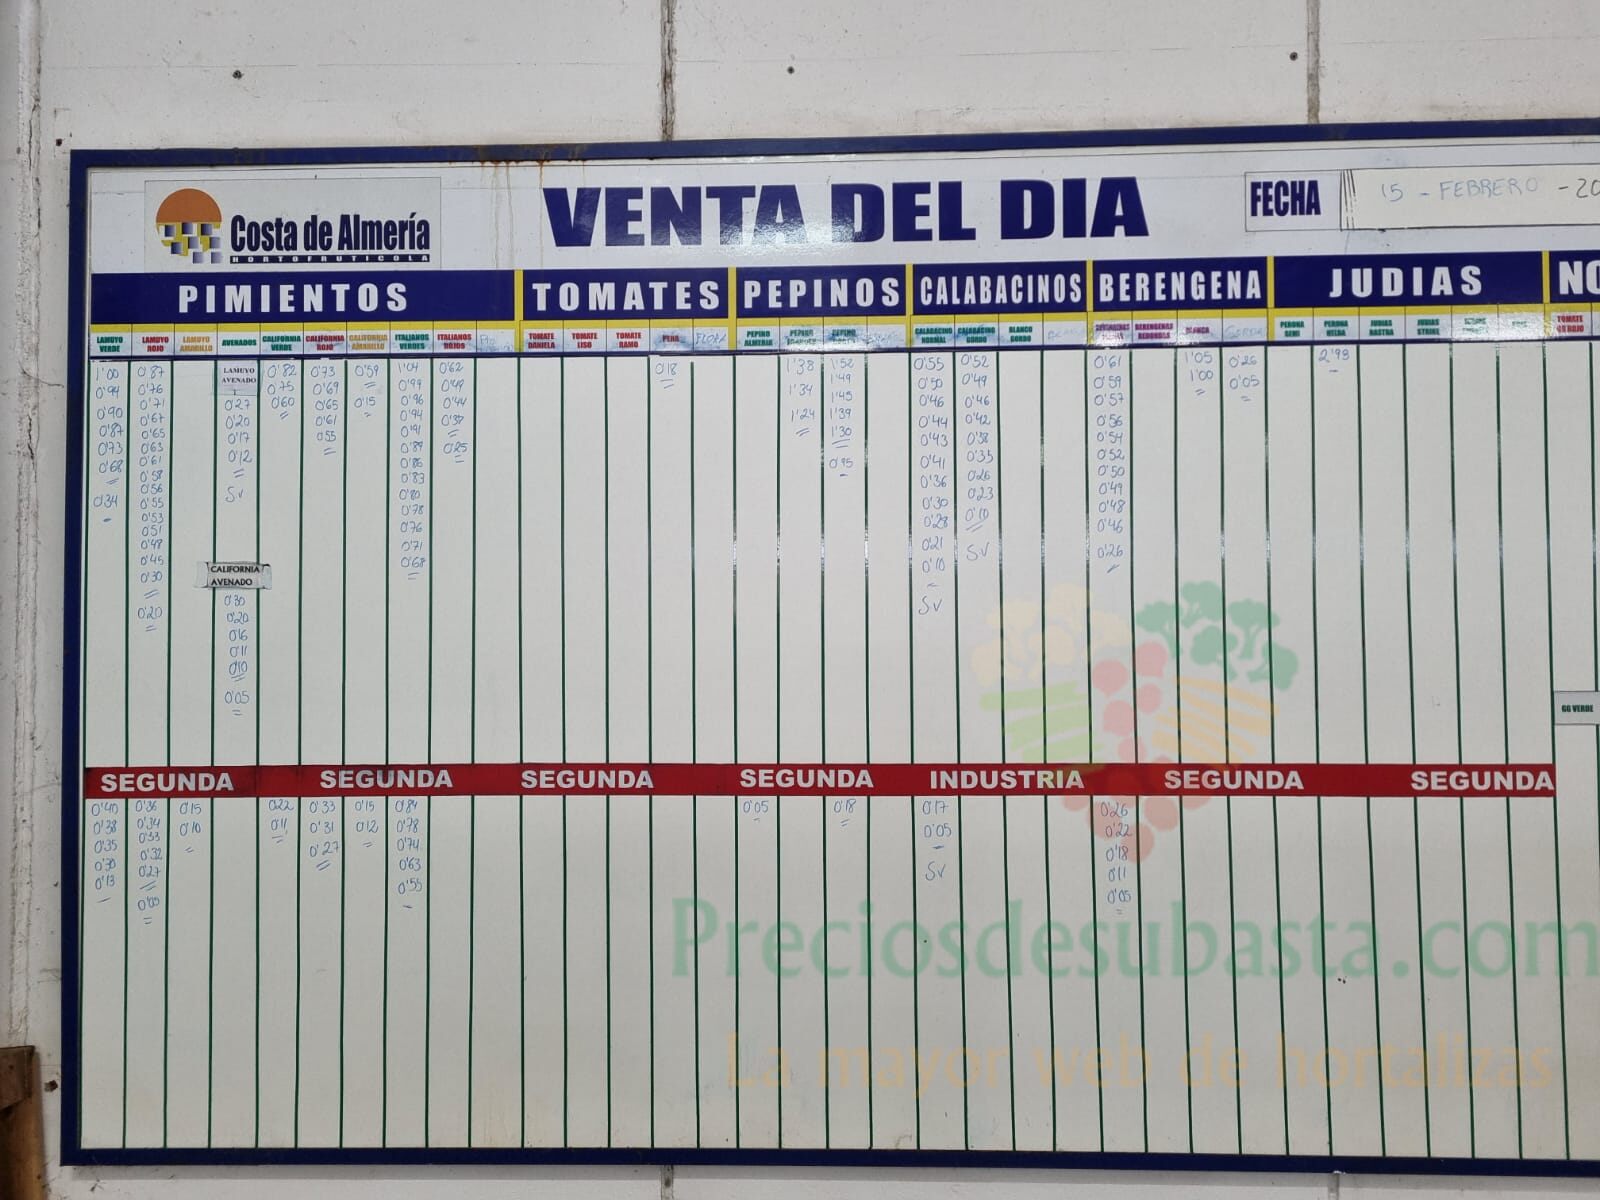 Costa de Almería
HORTOFRUTICOLA
VENTA DEL DIA
FECHA
15 - FEBRERO - 20
PIMIENTOS
TOMATES
PEPINOS
CALABACINOS
BERENGENA
JUDIAS
NO
LAMUYO VERDE
LAMUYO ROJO
LAMUYO AMARILLO
AVENADOS
CALIFORNIA VERDE
CALIFORNIA ROJO
CALIFORNIA AMARILLO
ITALIANOS VERDES
ITALIANOS ROJOS
TOMATE DANIELA
TOMATE LISO
TOMATE RAMO
PERA
FLOR
PEPINO ALMERIA
PEPINO
PEPINO
CALABACINO NORMAL
CALABACINO GORDO
BLANCO GORDO
BERENGENAS
BERENGENAS REDONDA
BLANCA
PERONA SEMI
PERONA HELDA
JUDIAS RASTRA
JUDIAS STRIKE
TOMATE GG ROJO
1'00
0'94
0'90
0'87
0'73
0'68
0'34
0'87
0'76
0'71
0'67
0'65
0'63
0'61
0'58
0'56
0'55
0'53
0'51
0'48
0'45
0'30
0'20
LAMUYO AVENADO
0'27
0'20
0'17
0'12
SV
CALIFORNIA AVENADO
0'30
0'20
0'16
0'11
0'10
0'05
0'82
0'75
0'60
0'73
0'69
0'65
0'61
0'55
0'59
0'15
1'04
0'99
0'96
0'94
0'91
0'89
0'86
0'83
0'80
0'78
0'76
0'71
0'68
0'62
0'49
0'44
0'37
0'25
0'18
1'38
1'34
1'24
1'52
1'49
1'45
1'39
1'30
0'95
0'55
0'50
0'46
0'44
0'43
0'41
0'36
0'30
0'28
0'21
0'10
SV
0'52
0'49
0'46
0'42
0'38
0'35
0'26
0'23
0'10
SV
0'61
0'59
0'57
0'56
0'54
0'52
0'50
0'49
0'48
0'46
0'26
1'05
1'00
0'26
0'05
2'93
GG VERDE
SEGUNDA
SEGUNDA
SEGUNDA
SEGUNDA
INDUSTRIA
SEGUNDA
SEGUNDA
0'40
0'38
0'35
0'30
0'13
0'36
0'34
0'33
0'32
0'27
0'05
0'15
0'10
0'22
0'11
0'33
0'31
0'27
0'15
0'12
0'84
0'78
0'74
0'63
0'55
0'05
0'18
0'17
0'05
SV
0'26
0'22
0'18
0'11
0'05
Preciosdesubasta.com
La mayor web de hortalizas